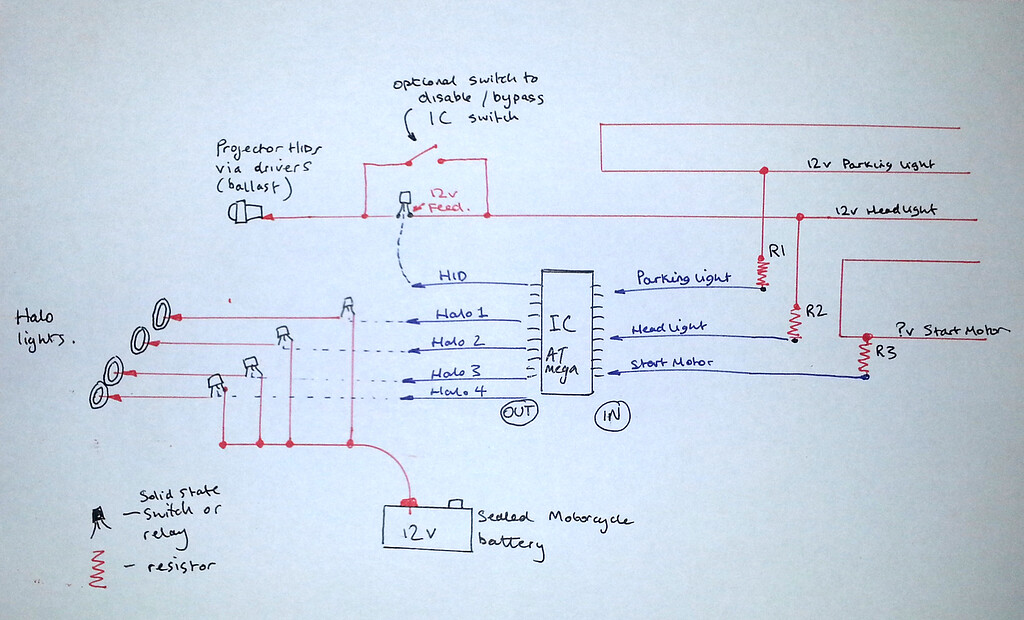 optional switch to
disable / bypass
IC switch
Projector HIDs
via drivers
(ballast)
12v
Feed.
12v Parking Light
12v HeadLight
HID
Parking Light
R1
Halo 1
Halo
lights.
IC
AT
mega
Headlight
R2
Halo 2
?v Start Motor
Start Motor
R3
Halo 3
Halo 4
OUT
IN
Solid state
- Switch or
relay
12v
Sealed Motorcycle
battery
- resistor